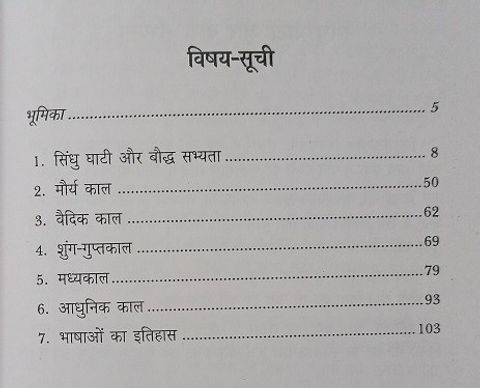 विषय-सूची
भूमिका ........................................................................ 5
1. सिंधु घाटी और बौद्ध सभ्यता ........................................ 8
2. मौर्य काल ............................................................ 50
3. वैदिक काल ........................................................... 62
4. शुंग-गुप्तकाल ........................................................ 69
5. मध्यकाल .............................................................. 79
6. आधुनिक काल ....................................................... 93
7. भाषाओं का इतिहास ............................................... 103